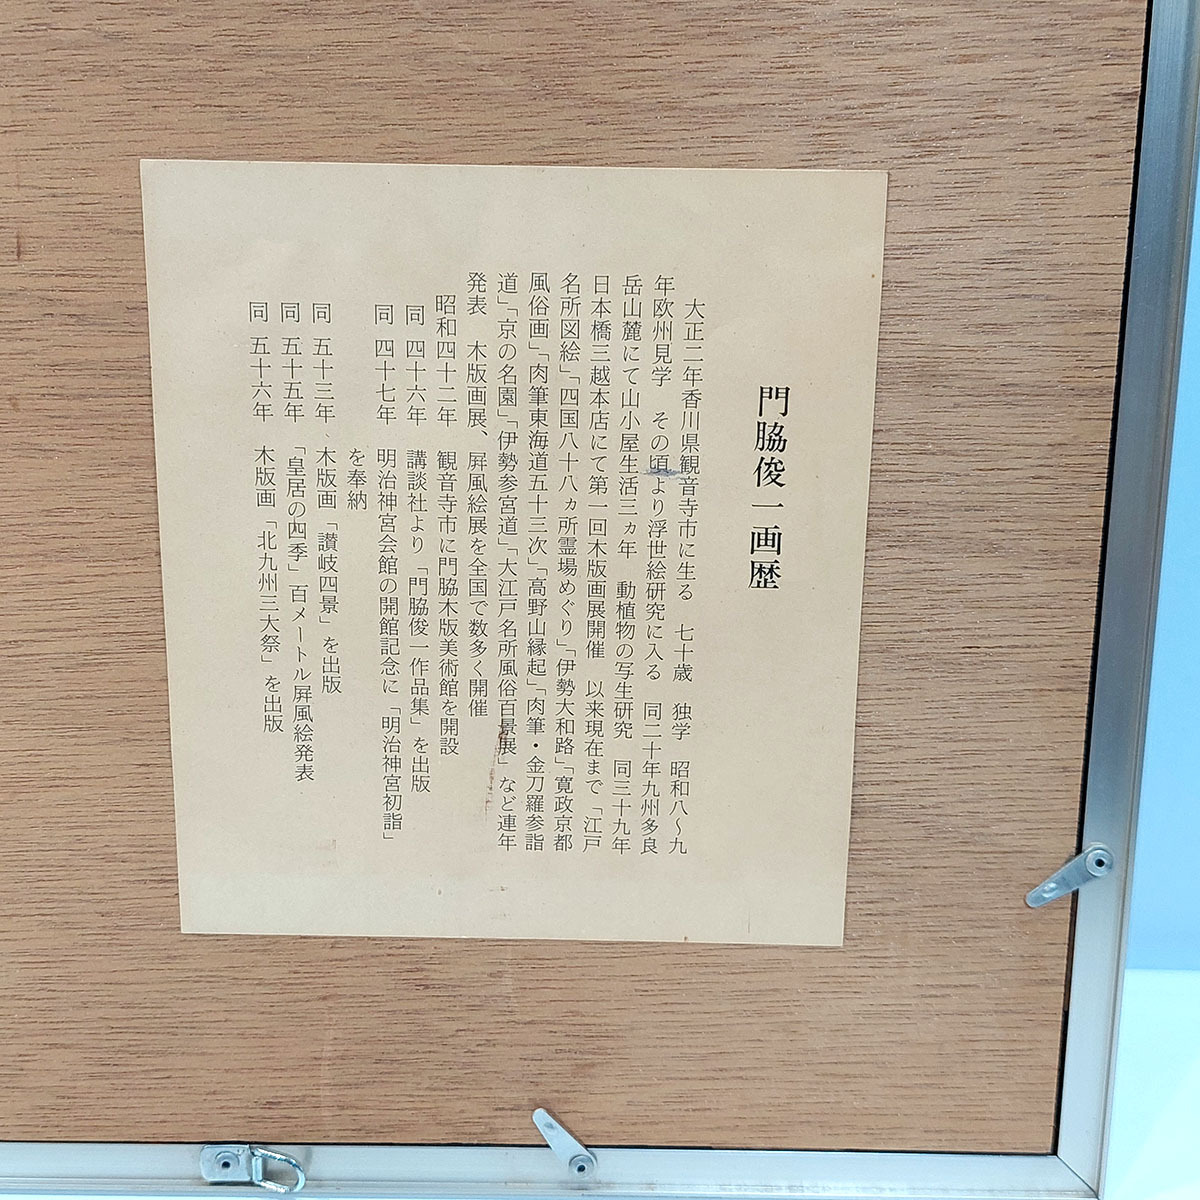 門脇俊一画歴
大正二年香川県観音寺市に生る　七十歳　独学　昭和八〜九
年欧州見学　その頃より浮世絵研究に入る　同二十年九州多良
岳山麓にて山小屋生活三ヵ年　動植物の写生研究　同三十九年
日本橋三越本店にて第一回木版画展開催　以来現在まで「江戸
名所図絵」「四国八十八ヵ所霊場めぐり」「伊勢大和路」「寛政京都
風俗画」「肉筆東海道五十三次」「高野山縁起」「肉筆・金刀羅参詣
道」「京の名園」「伊勢参宮道」「大江戸名所風俗百景展」など連年
発表　木版画展、屛風絵展を全国で数多く開催
昭和四十二年　観音寺市に門脇木版美術館を開設
同　四十六年　講談社より「門脇俊一作品集」を出版
同　四十七年　明治神宮会館の開館記念に「明治神宮初詣」
を奉納
同　五十三年、木版画「讃岐四景」を出版
同　五十五年　「皇居の四季」百メートル屛風絵発表
同　五十六年　木版画「北九州三大祭」を出版